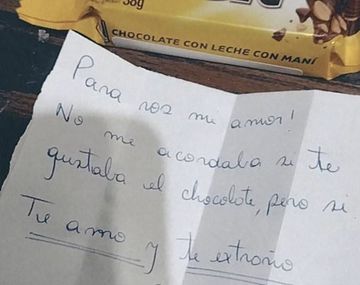 38g
CHOCOLATE CON LECHE CON MANÍ
Para vos mi amor!
No me acordaba si te
gustaba el chocolate, pero si.
Te amo y te extraño